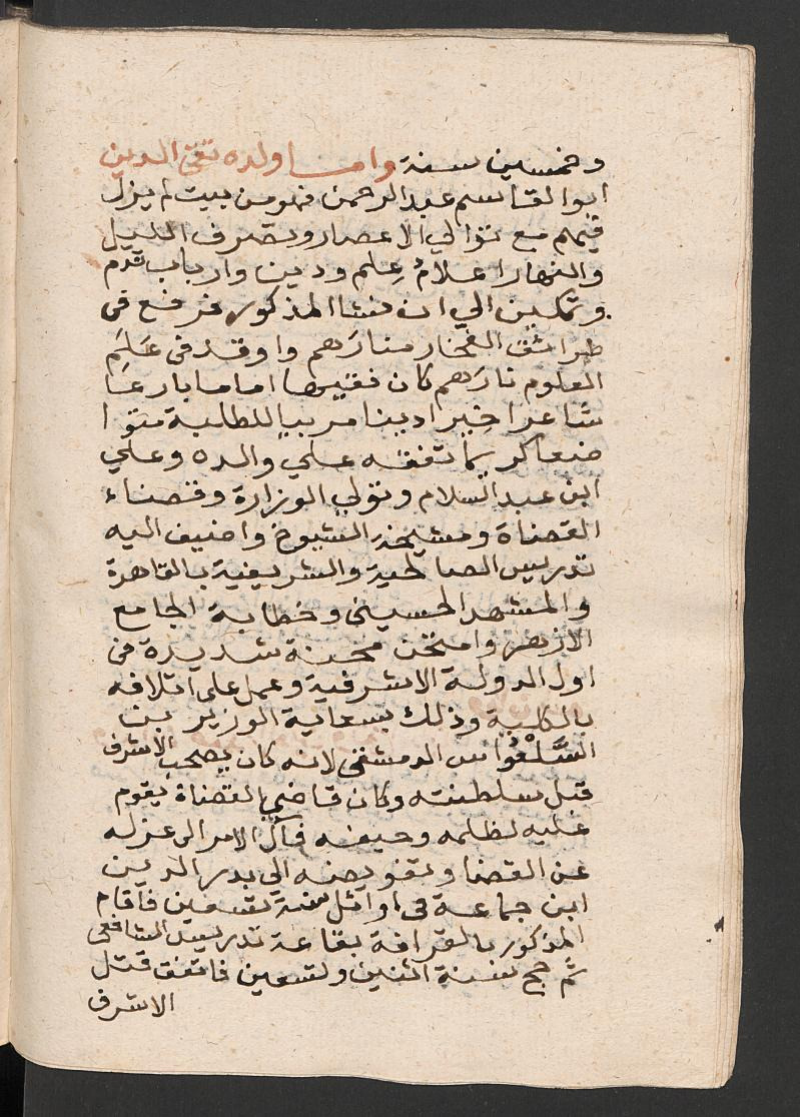 وخمسين سنة واما ولده تقي الدين
ابو القاسم عبد الرحمن فهو من بيت لم يزل
فيهم مع توالي الاعصار وتصرف الليل
والنهار اعلام عِلم ودين وارباب تقدم
وتمكين الي ان نشا المذكور فرفع في
شرائف الفخار منارَهم واوقد في عَلَم
العلوم نارَهم كان فقيها اماما بارعَا
شاعرا خيرا دينا مربيا للطلبة متوا
ضعا كريما تفقه علي والده وعلي
ابن عبد السلام وتولي الوزارة وقضاء
القضاة ومشيخة الشيوخ واضيف اليه
تدريس الصالحية والشريفية بالقاهرة
والمشهد الحسيني وخطابة الجامع
الازهر وامتحن محنة شديدة في
اول الدولة الاشرفية وعمل على اتلافه
بالكلية وذلك بسعاية الوزير بن
السَّلْعُوس الدمشقى لانه كان يصحب الاشرف
قبل سلطنته وكان قاضي القضاة يقوم
عليه لظلمه وحيفه فآل الامر الى عزله
عن القضا وتفويضه الي بدر الدين
ابن جماعة في اوائل سنة تسعين فاقام
المذكور بالقرافة بقاعة تدريس الشافعى
ثم حج سنة اثنين وتسعين فاتفق قتل
الاشرف